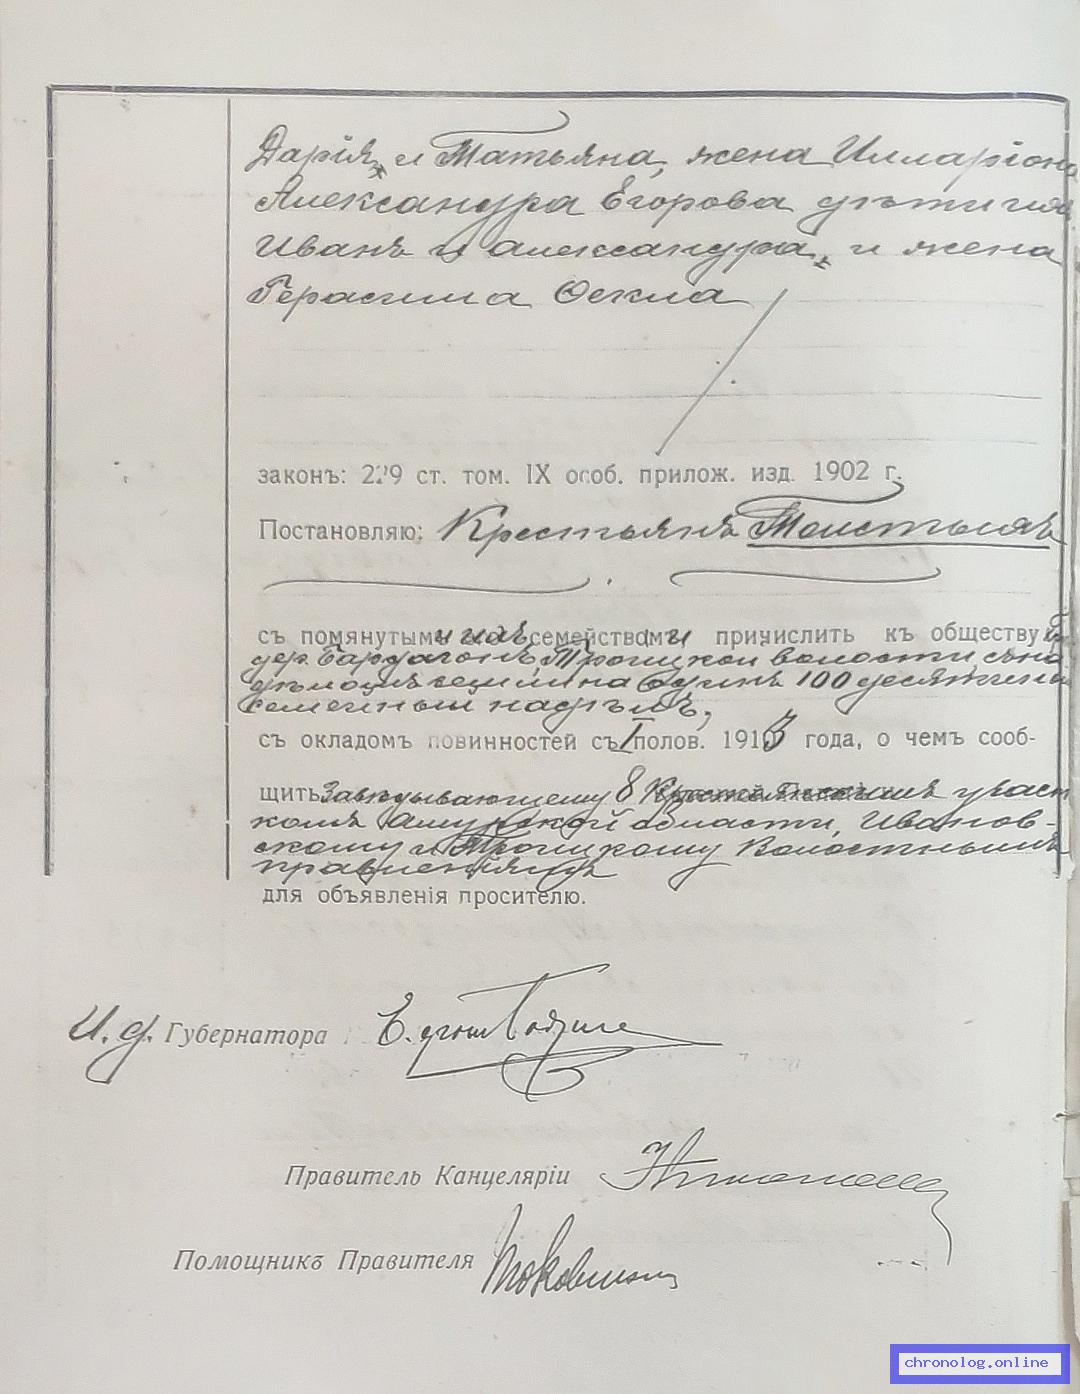 Дарія, и Татьяна, жена Илларіона
Александра Егорова дѣти ихъ
Иванъ и Александра, и жена
Герасима Фекла
законъ: 229 ст. том. IX особ. прилож. изд. 1902 г.
Постановляю: Крестьянъ
съ помянутыми ихъ семействами причислить къ обществу
дер. Бардагонъ, Троицкой волости, съ на
дѣломъ земли на 100 десятинъ
семейный надѣлъ,
съ окладомъ повинностей съ I полов. 1913 года, о чемъ сооб-
щить Завѣдывающему 8 участ
комъ Амурской области, Иванов-
скому и Троицкому Волостнымъ
правленіямъ
для объявленія просителю.
И. д. Губернатора
Правитель Канцеляріи
Помощникъ Правителя
chronolog.online